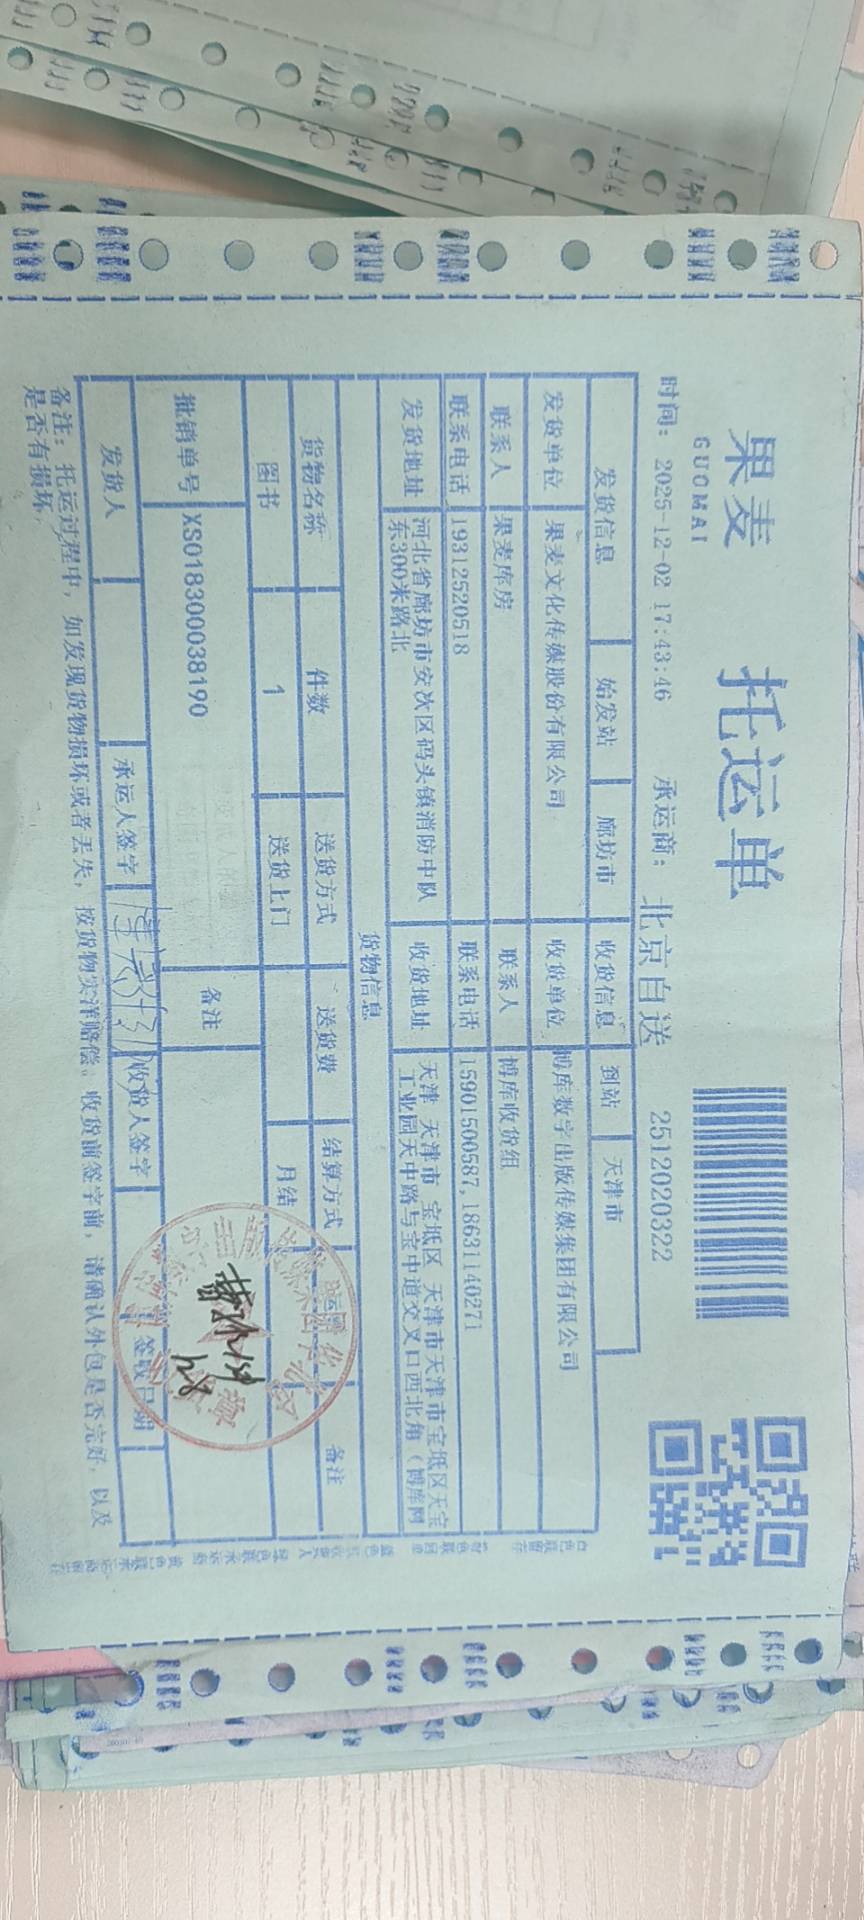 果麦
GUOMAI
托运单
2512020322
时间：2025-12-02 17:43:46 承运商：北京自送
发货信息 始发站 廊坊市 收货信息 到站 天津市
发货单位 果麦文化传媒股份有限公司 收货单位 博库数字出版传媒集团有限公司
联系人 果麦库房 联系人 博库收货组
联系电话 19312520518 联系电话 15901500587,18631140271
发货地址 河北省廊坊市安次区码头镇消防中队 收货地址 天津 天津市 宝坻区 天津市天津市宝坻区天宝
东300米路北 工业园天中路与宝中道交叉口西北角（博库网
货物信息
货物名称 件数 送货方式 送货费 结算方式 备注
图书 1 送货上门 月结
批销单号 XS018300038190 备注
发货人 承运人签字 收货人签字 签收日期
备注：托运过程中，如发现货物损坏或者丢失，按货物实洋赔偿。收货前签字前，请确认外包是否完好，以及
是否有损坏，